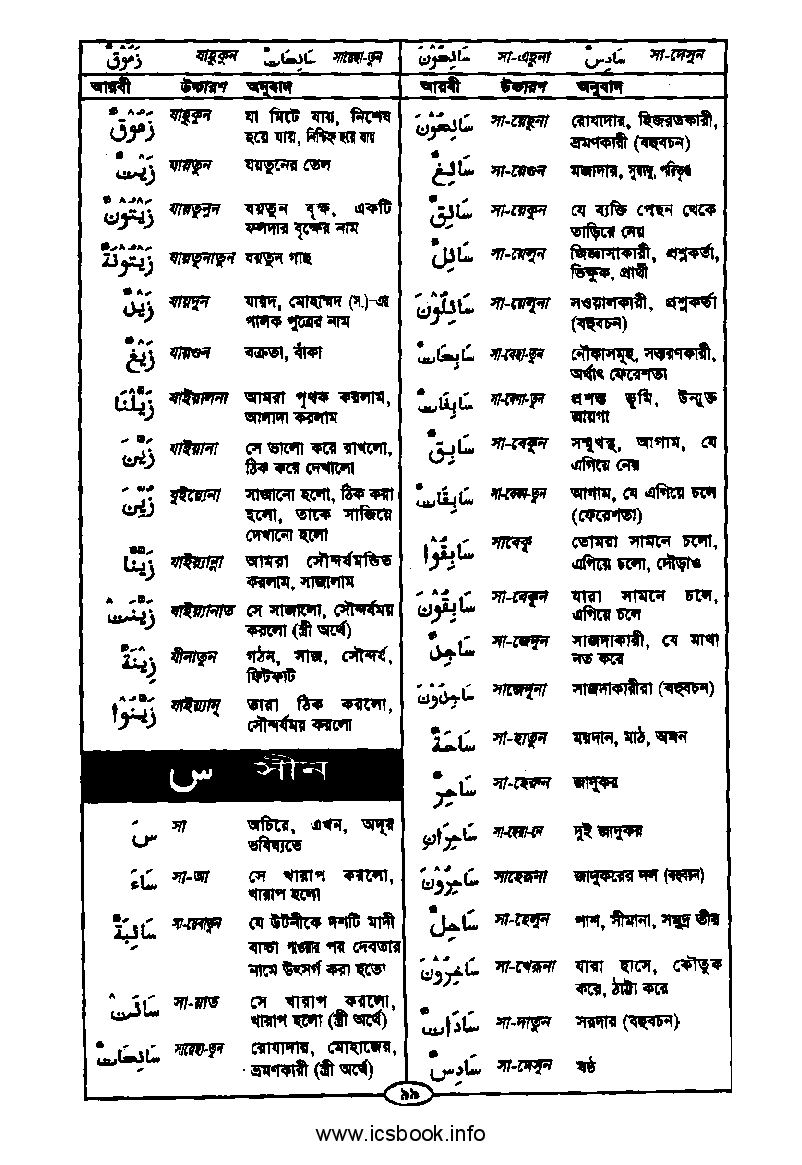 زَهُوقٌ যাহুকুন سَائِحَاتٌ সায়েহা-তুন
আরবী উচ্চারণ অনুবাদ
زَهُوقٌ যাহুকুন যা মিটে যায়, নিশেষ
হয়ে যায়, নিশ্চিহ্ন হয়ে যায়
زَيْتٌ যায়তুন যয়তুনের তেল
زَيْتُونٌ যায়তুনুন যয়তুন বৃক্ষ, একটি
ফলদার বৃক্ষের নাম
زَيْتُونَةٌ যায়তুনাতুন যয়তুন গাছ
زَيْدٌ যায়দুন যায়দ, মোহাম্মদ (স.)-এর
পালক পুত্রের নাম
زَيْغٌ যায়গুন বক্রতা, বাঁকা
زَيَّلْنَا যাইয়ালনা আমরা পৃথক করলাম,
আলাদা করলাম
زَيَّنَ যাইয়ানা সে ভালো করে রাখলো,
ঠিক করে দেখালো
زُيِّنَ যুইয়্যেনা সাজানো হলো, ঠিক করা
হলো, তাকে সাজিয়ে
দেখানো হলো
زَيَّنَّا যাইয়্যান্না আমরা সৌন্দর্যমন্ডিত
করলাম, সাজালাম
زَيَّنَتْ যাইয়্যানাত সে সাজালো, সৌন্দর্যময়
করলো (স্ত্রী অর্থে)
زِينَةٌ যীনাতুন গঠন, সাজ, সৌন্দর্য,
ফিটফাট
زَيَّنُوا যাইয়্যানু তারা ঠিক করলো,
সৌন্দর্যময় করলো
س সীন
سَ সা অচিরে, এখন, অদূর
ভবিষ্যতে
سَاءَ সা-আ সে খারাপ করলো,
খারাপ হলো
سَائِبَةٌ সা-য়েবাতুন যে উটনীকে দশটি মাদী
বাচ্চা পাওয়ার পর দেবতার
নামে উৎসর্গ করা হতো
سَائَتْ সা-য়াত সে খারাপ করলো,
খারাপ হলো (স্ত্রী অর্থে)
سَائِحَاتٌ সায়েহা-তুন রোযাদার, মোহাজের,
ভ্রমণকারী (স্ত্রী অর্থে)
سَائِحُوْنَ সা-এহুনা سَادِسٌ সা-দেসুন
আরবী উচ্চারণ অনুবাদ
سَائِحُوْنَ সা-য়েহুনা রোযাদার, হিজরতকারী,
ভ্রমণকারী (বহুবচন)
سَائِغٌ সা-য়েগুন মজাদার, সুস্বাদু, পরিতৃপ্ত
سَائِقٌ সা-য়েকুন যে ব্যক্তি পেছন থেকে
তাড়িয়ে নেয়
سَائِلٌ সা-য়েলুন জিজ্ঞাসাকারী, প্রশ্নকর্তা,
ভিক্ষুক, প্রার্থী
سَائِلُوْنَ সা-য়েলুনা সওয়ালকারী, প্রশ্নকর্তা
(বহুবচন)
سَابِحَاتٌ সা-বেহা-তুন নৌকাসমূহ, সন্তরণকারী,
অর্থাৎ ফেরেশতা
سَابِغَاتٌ সা-বেগা-তুন প্রশস্ত ভূমি, উন্মুক্ত
জায়গা
سَابِقٌ সা-বেকুন সম্মুখস্থ, আগাম, যে
এগিয়ে নেয়
سَابِقَاتٌ সা-বেকা-তুন আগাম, যে এগিয়ে চলে
(ফেরেশতা)
سَابِقُوا সাবেকু তোমরা সামনে চলো,
এগিয়ে চলো, দৌড়াও
سَابِقُوْنَ সা-বেকুন যারা সামনে চলে,
এগিয়ে চলে
سَاجِدٌ সা-জেদুন সাজদাকারী, যে মাথা
নত করে
سَاجِدُوْنَ সাজেদুনা সাজদাকারীরা (বহুবচন)
سَاحَةٌ সা-হাতুন ময়দান, মাঠ, অঙ্গন
سَاحِرٌ সা-হেরুন জাদুকর
سَاحِرَانِ সা-হেরা-নে দুই জাদুকর
سَاحِرُوْنَ সাহেরুনা জাদুকরের দল (বহুবচন)
سَاحِلٌ সা-হেলুন পাশ, সীমানা, সমুদ্র তীর
سَاخِرُوْنَ সা-খেরুনা যারা হাসে, কৌতুক
করে, ঠাট্টা করে
سَادَاتٌ সা-দাতুন সরদার (বহুবচন)
سَادِسٌ সা-দেসুন ষষ্ঠ
৯৯
www.icsbook.info